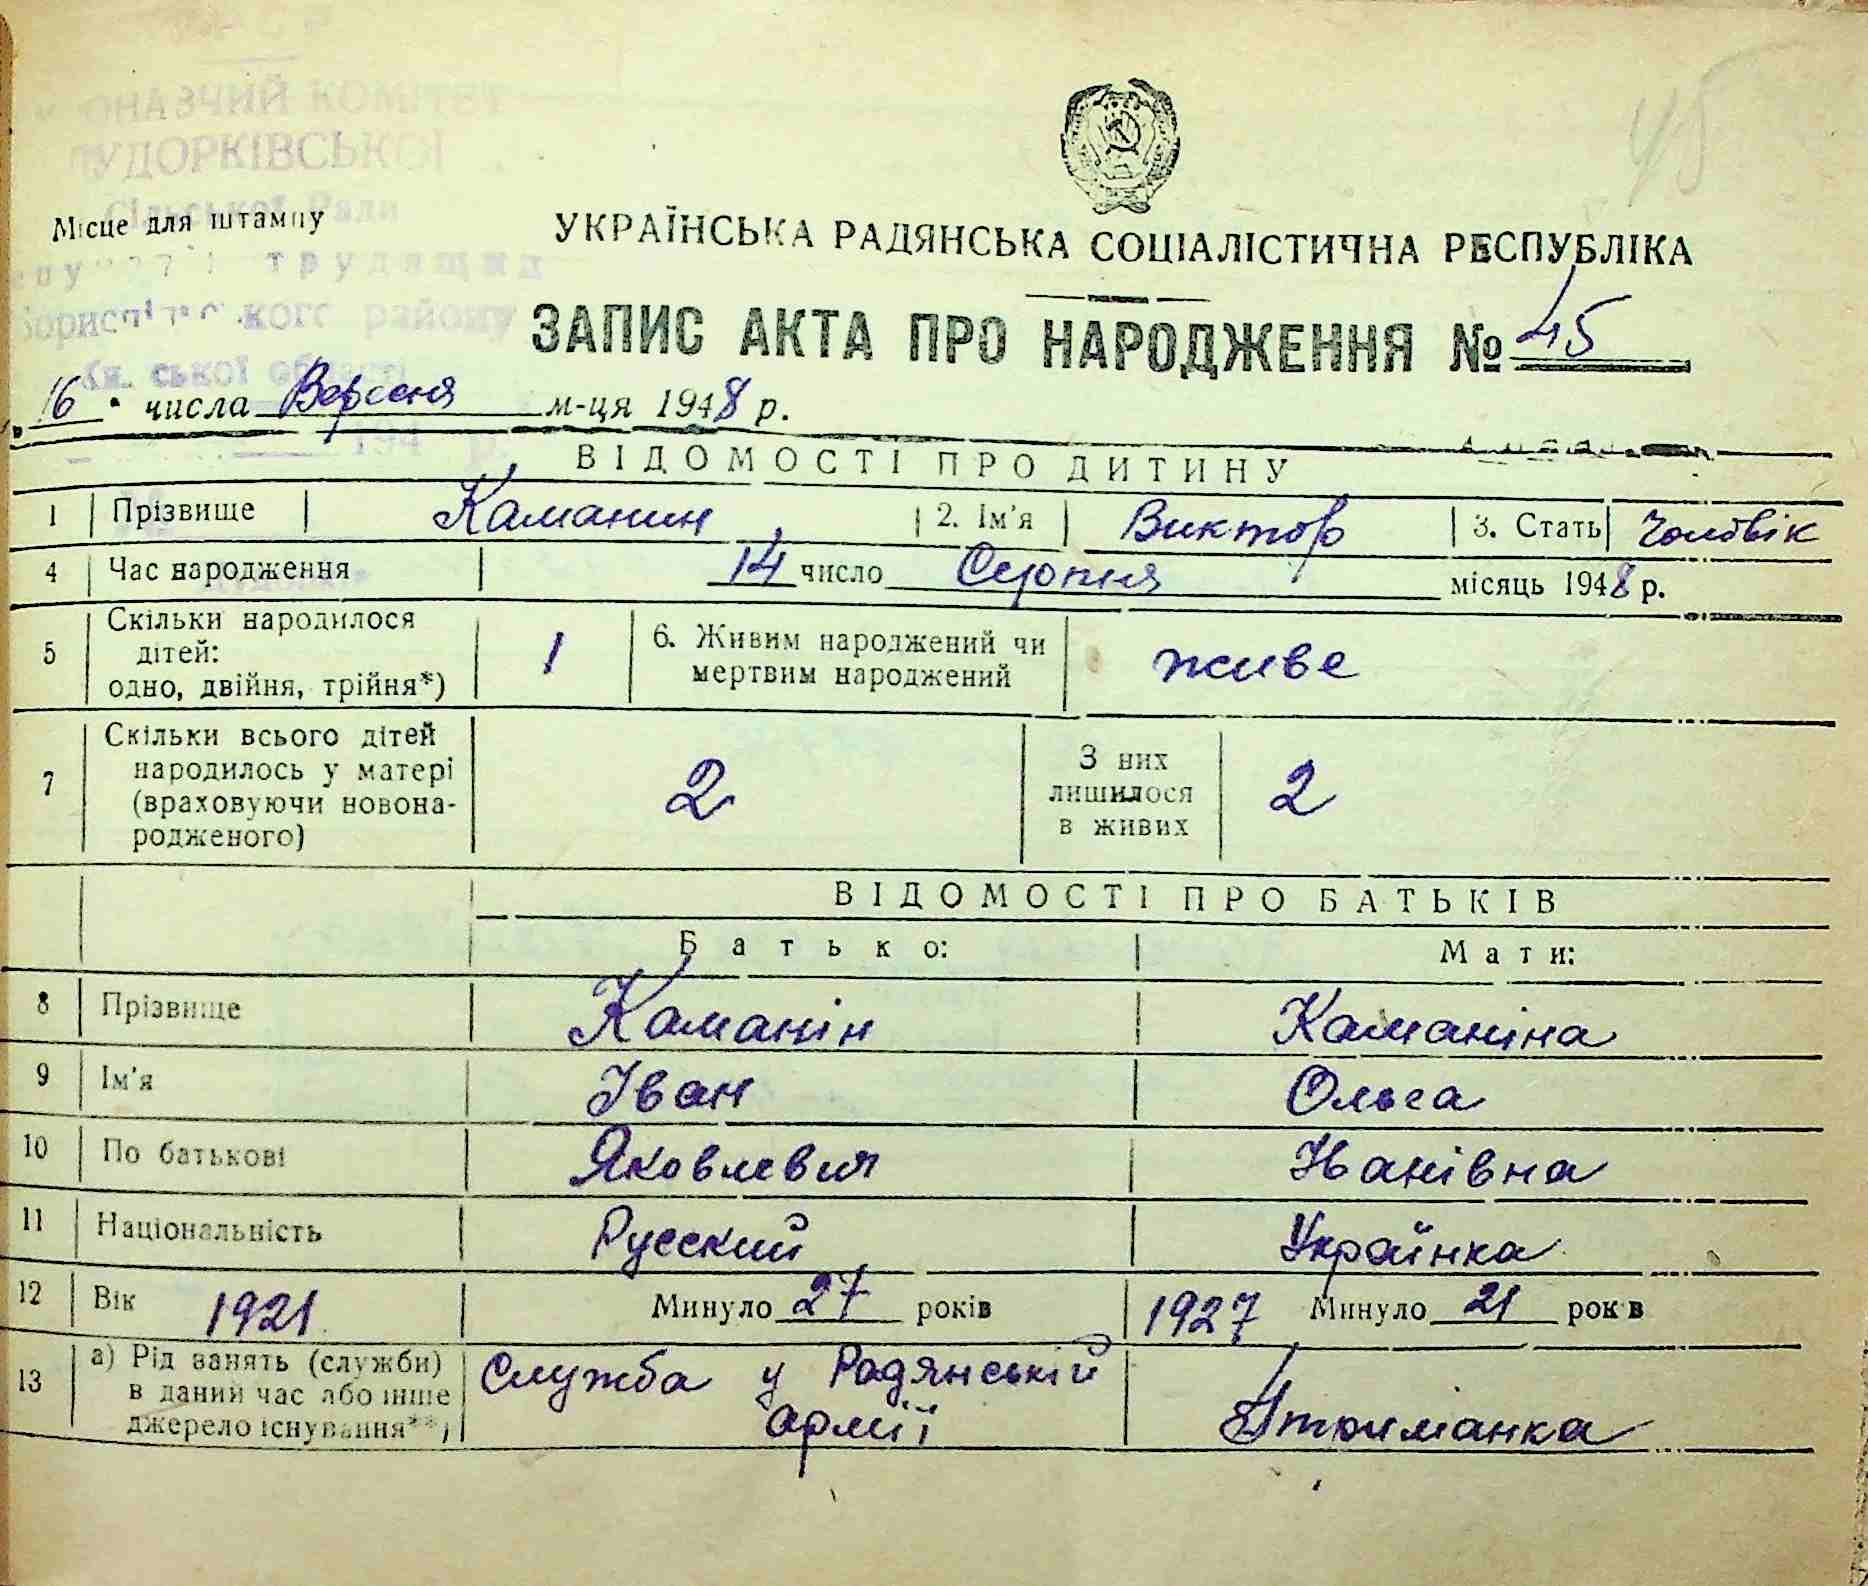 КОМІТЕТ
ДУДОРКІВСЬКОЇ
Сільської Ради
Місце для штампу
трудящих
району
45
УКРАЇНСЬКА РАДЯНСЬКА СОЦІАЛІСТИЧНА РЕСПУБЛІКА
ЗАПИС АКТА ПРО НАРОДЖЕННЯ № 45
16 числа Вересня м-ця 1948 р.
194 р.
ВІДОМОСТІ ПРО ДИТИНУ
1 Прізвище Каманин 2. Ім'я Виктор 3. Стать Чоловік
4 Час народження 14 число Серпня місяць 1948 р.
5 Скільки народилося дітей: одно, двійня, трійня*) 1 6. Живим народжений чи мертвим народжений живе
7 Скільки всього дітей народилось у матері (враховуючи новонародженого) 2 З них лишилося в живих 2
ВІДОМОСТІ ПРО БАТЬКІВ
Батько: Мати:
8 Прізвище Каманін Каманіна
9 Ім'я Іван Ольга
10 По батькові Яковлевич Іванівна
11 Національність Русский Українка
12 Вік 1921 Минуло 27 років 1927 Минуло 21 років
13 а) Рід занять (служби) в даний час або інше джерело існування**) Служба у Радянській армії Утриманка